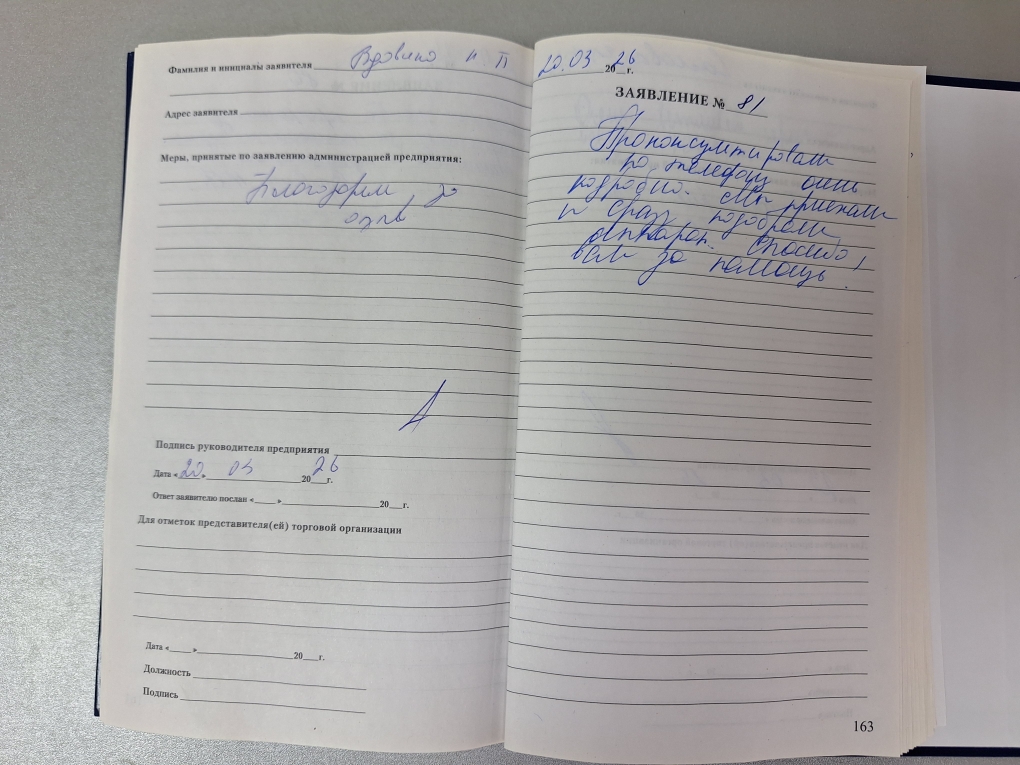 Фамилия и инициалы заявителя Вдовина Н П
Адрес заявителя
Меры, принятые по заявлению администрацией предприятия:
Благодарим за
отзыв
Подпись руководителя предприятия
Дата «20» 03 2026 г.
Ответ заявителю послан «___» 20__г.
Для отметок представителя(ей) торговой организации
Дата «___» 20__г.
Должность
Подпись
20.03 2026 г.
ЗАЯВЛЕНИЕ № 81
Проконсультировали
по телефону очень
подробно. Мы приехали
и сразу подобрали
аппарат. Спасибо
вам за помощь!
163